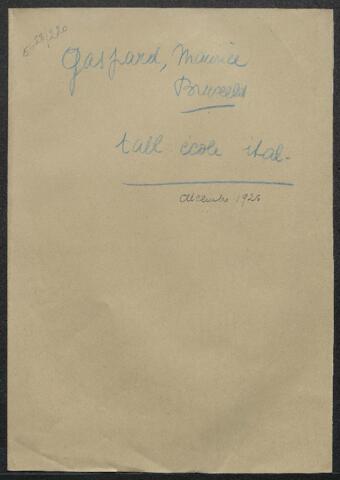 Gaspard, Maurice
Bruxelles
tabl école ital.
décembre 1926